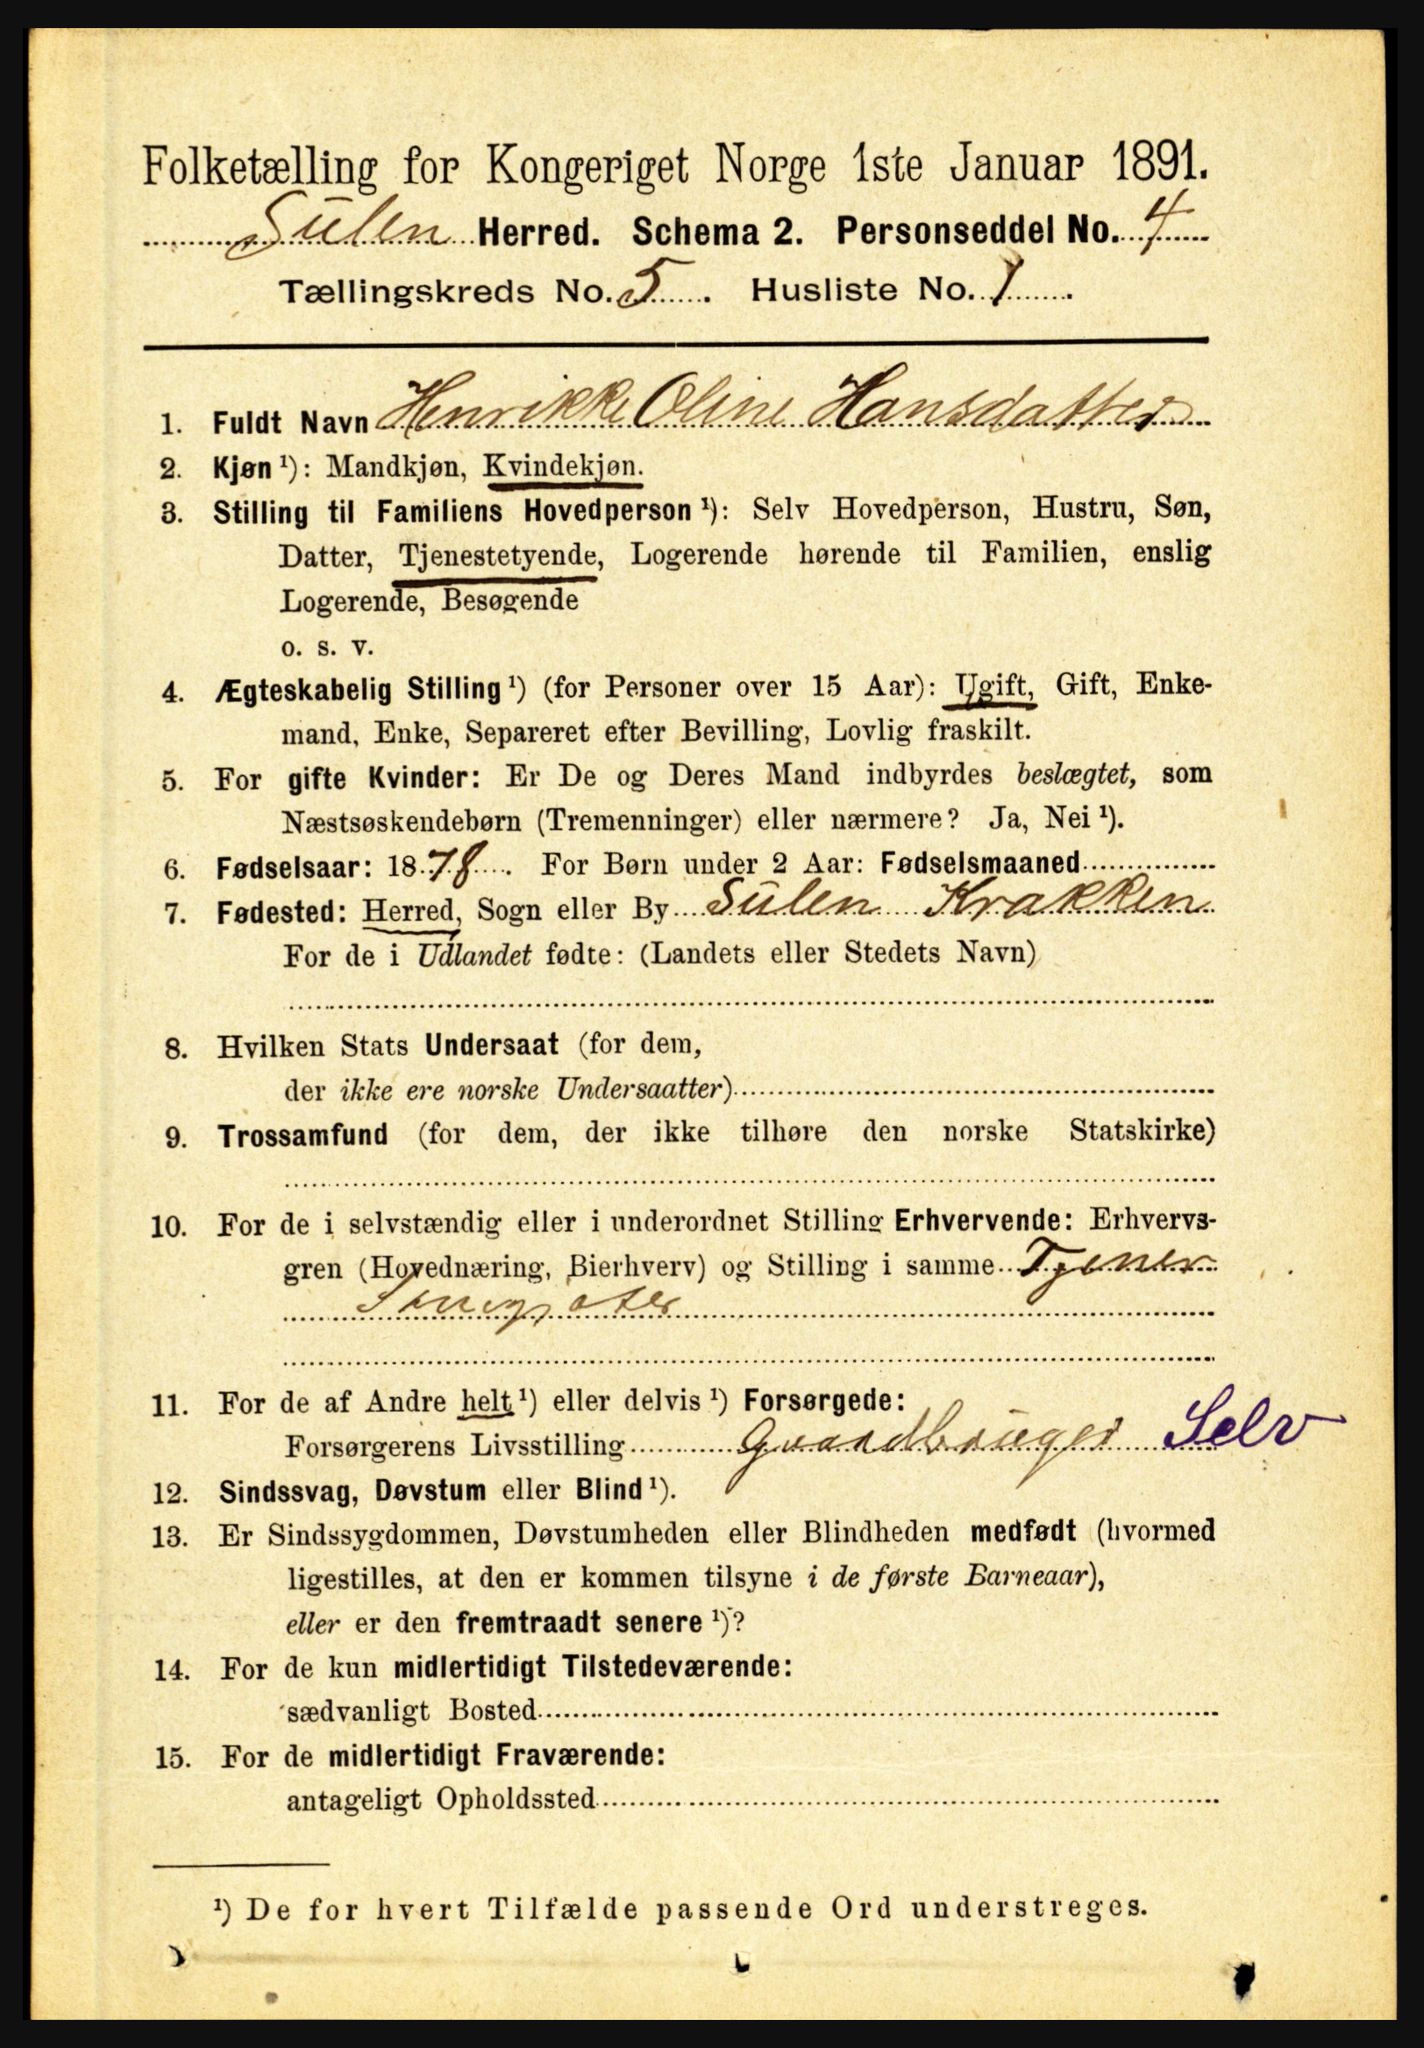 Folketælling for Kongeriget Norge 1ste Januar 1891.
Sulen Herred. Schema 2. Personseddel No. 4
Tællingskreds No. 5. Husliste No. 1.
1. Fuldt Navn Henrikke Oline Hansdatter
2. Kjøn ¹): Mandkjøn, Kvindekjøn.
3. Stilling til Familiens Hovedperson ¹): Selv Hovedperson, Hustru, Søn,
Datter, Tjenestetyende, Logerende hørende til Familien, enslig
Logerende, Besøgende
o. s. v.
4. Ægteskabelig Stilling ¹) (for Personer over 15 Aar): Ugift, Gift, Enke-
mand, Enke, Separeret efter Bevilling, Lovlig fraskilt.
5. For gifte Kvinder: Er De og Deres Mand indbyrdes beslægtet, som
Næstsøskendebørn (Tremenninger) eller nærmere? Ja, Nei ¹).
6. Fødselsaar: 1878. For Børn under 2 Aar: Fødselsmaaned
7. Fødested: Herred, Sogn eller By Sulen Krakken
For de i Udlandet fødte: (Landets eller Stedets Navn)
8. Hvilken Stats Undersaat (for dem,
der ikke ere norske Undersaatter)
9. Trossamfund (for dem, der ikke tilhøre den norske Statskirke)
10. For de i selvstændig eller i underordnet Stilling Erhvervende: Erhvervs-
gren (Hovednæring, Bierhverv) og Stilling i samme Tjener
11. For de af Andre helt ¹) eller delvis ¹) Forsørgede:
Forsørgerens Livsstilling Gaardbruger Selv
12. Sindssvag, Døvstum eller Blind ¹).
13. Er Sindssygdommen, Døvstumheden eller Blindheden medfødt (hvormed
ligestilles, at den er kommen tilsyne i de første Barneaar),
eller er den fremtraadt senere ¹)?
14. For de kun midlertidigt Tilstedeværende:
sædvanligt Bosted
15. For de midlertidigt Fraværende:
antageligt Opholdssted
¹) De for hvert Tilfælde passende Ord understreges.